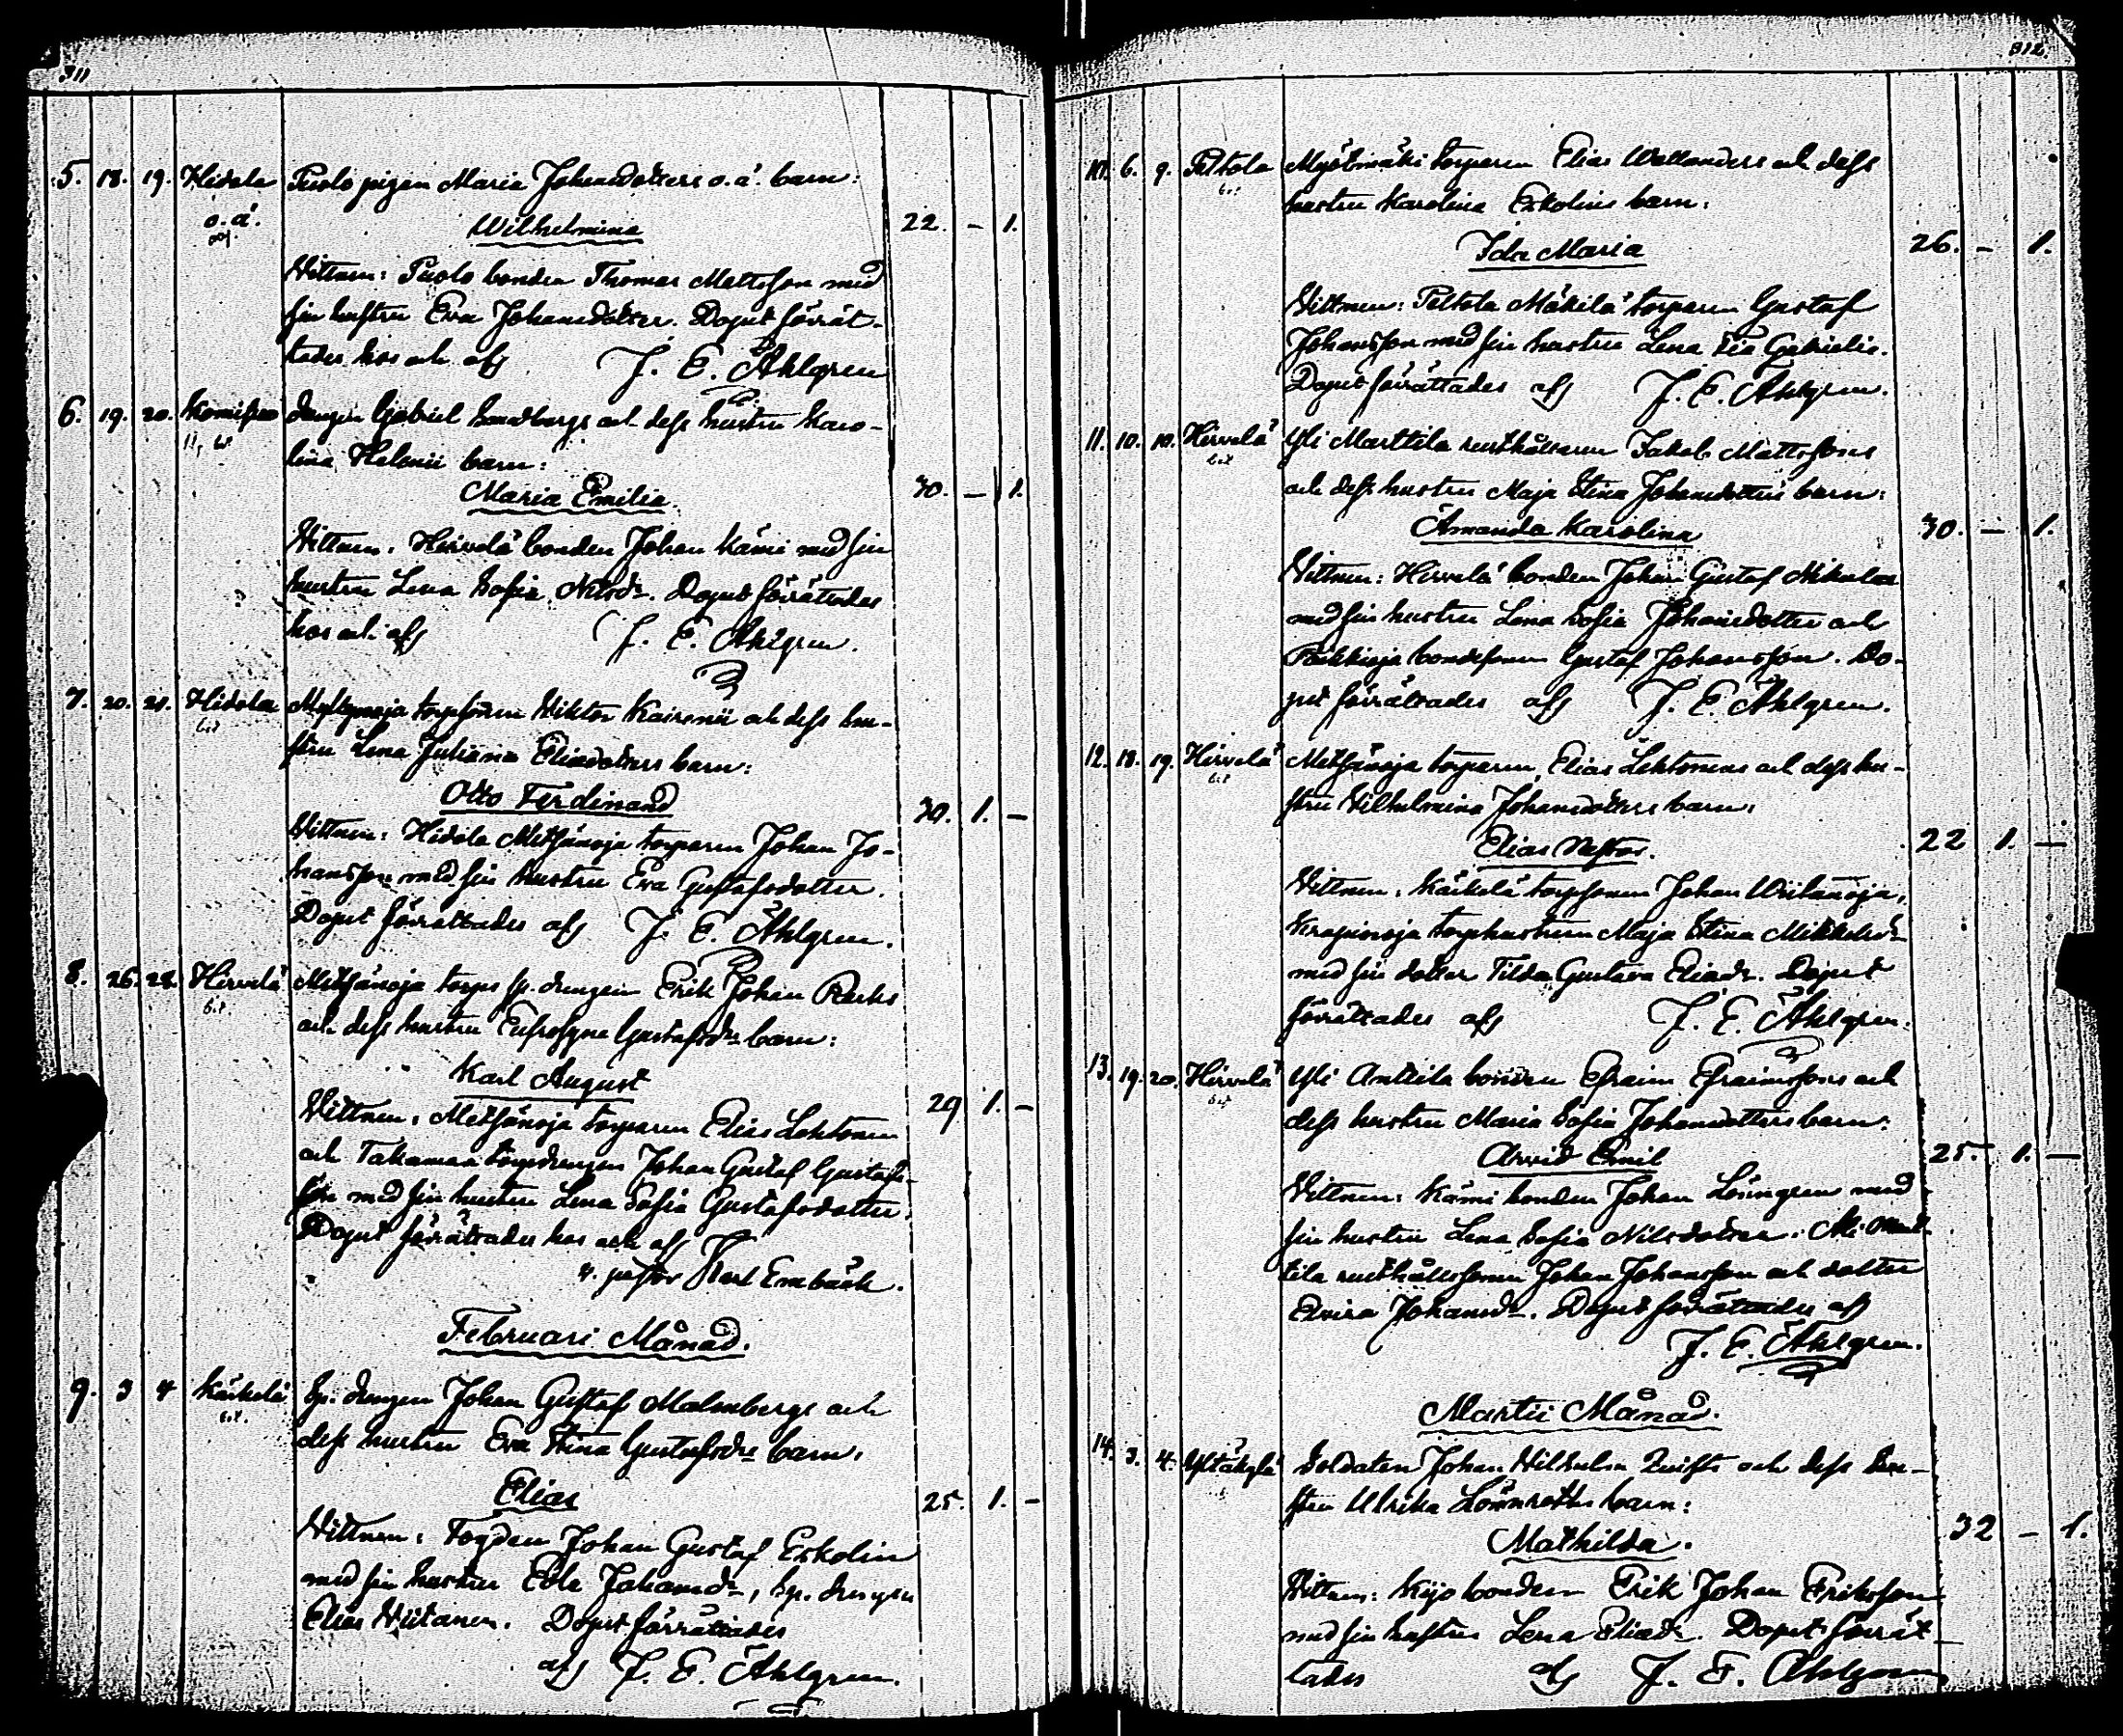 311
5. 18. 19. Hidola Puolo pigan Maria Johansdotters o.ä. barn:
o.ä.
Wilhelmina 22. – 1.
Vittnen: Puolo bonden Thomas Mattsson med
sin hustru Eva Johansdotter. Dopet förrät-
tades hos och af J. E. Ahlgren
6. 19. 20. drengen Gabriel Sandbergs och dess hustru Karo-
lina Helenii barn:
Maria Emilia. 30. – 1.
Vittnen: Hirvelä bonden Johan Kämi med sin
hustru Lena Sofia Nilsdr. Dopet förrättades
hos och af J. E. Ahlgren.
7. 20. 21. Hidola torpsonen Viktor och dess hu-
stru Lena Juliana Eliedotters barn:
Otto Ferdinand 30. 1. –
Vittnen: Hidola Metsänoja torparen Johan Jo-
hansson med sin hustru Eva Gustafsdotter.
Dopet förrättades af J. E. Ahlgren.
8. 26. 28. Hirvelä Metsänoja torps sp. drengen Erik Johan
och dess hustru Eufrosyne Gustafsdr barn:
Karl August 29 1. –
Vittnen: Metsänoja torparen Elias Lehtonen
och Takamaa torpdrengen Johan Gustaf Gustafs-
son med sin hustru Lena Sofia Gustafsdotter.
Dopet förrättades hos och af
v. pastor Karl Enebäck.
Februari Månad.
9. 3 4 Käikelä Sp. drengen Johan Gustaf Malmbergs och
dess hustru Eva Stina Gustafsdrs barn.
Elias 25. 1. –
Vittnen: Fogden Johan Gustaf Erkolin
med sin hustru Eola Johansdr, sp. drengen
Elias Viitanen. Dopet förrättades
af J. E. Ahlgren.
312.
10. 6. 9. Peltola torparen Elias Wallanders och dess
hustru Karolina Erkolins barn:
Ida Maria 26. – 1.
Vittnen: Peltola Mäkilä torparen Gustaf
Johansson med sin hustru Lena
Dopet förrättades af J. E. Ahlgren.
11. 10. 10. Hirvelä Yli Marttila rusthållaren Jakob Mattssons
och dess hustru Maja Stina Johansdotters barn:
Amanda Karolina 30. – 1.
Vittnen: Hirvelä bonden Johan Gustaf Nikulaa
med sin hustru Lena Sofia Johansdotter och
bondsonen Gustaf Johansson. Do-
pet förrättades af J. E. Ahlgren.
12. 18. 19. Hirvelä Metsänoja torparen Elias Lehtonens och dess hu-
stru Vilhelmina Johansdotters barn:
Elias Nestor. 22 1. –
Vittnen: Käikelä torpsonen Johan Wiitanoja,
torphustrun Maja Stina Mikkelsdr
med sin dotter Tilda Gustava Eliedr. Dopet
förrättades af J. E. Ahlgren.
13. 19. 20. Hirvelä Yli Anttila bonden Efraim Efraimssons och
dess hustru Maria Sofia Johansdotters barn:
Arvid Emil 25. 1. –
Vittnen: Kämi bonden Johan Löingren med
sin hustru Lena Sofia Nilsdotter. Ali Mart-
tila rusthållssonen Johan Johansson och dotter
Elvira Johansdr. Dopet förrättades af
J. E. Ahlgren.
Martii Månad.
14. 3. 4. Yltäkylä Soldaten Johan Vilhelm Qvists och dess hu-
stru Ulrika Lönnroths barn:
Mathilda. 32 – 1.
Vittnen: bonden Erik Johan Eriksson
med sin hustru Lena Eliedr. Dopet förrät-
tades af J. E. Ahlgren